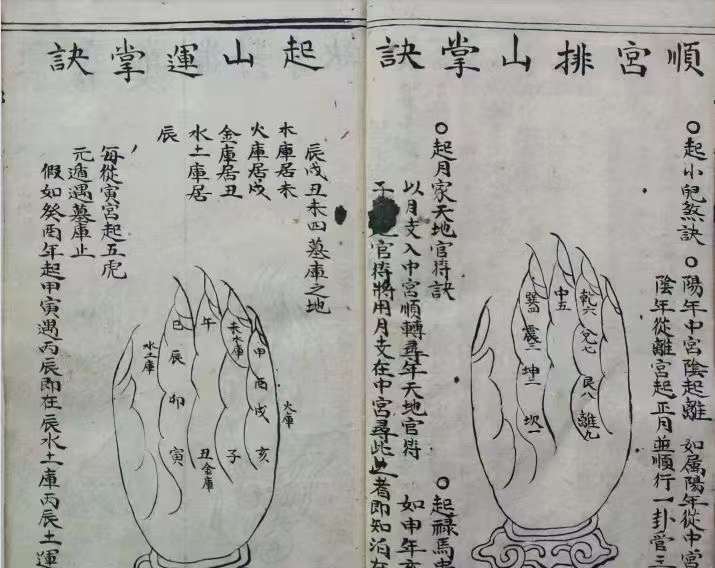 順宮排山掌訣
起小兒煞訣
陽年中宮陰起離 如属陽年從中宮
陰年從離宮起正月並順行一卦管三
乾六 兌七 艮八 離九
中五
巽四 震三 坤二 坎一
起月家天地官符訣
以月支入中宮順轉尋年天地官符 如申年亥
官符將用月支在中宮尋此
者即知泊在
起祿馬
起山運掌訣
辰戌丑未四墓庫之地
木庫居未
火庫居戌
金庫居丑
水土庫居
辰
每從寅宮起五虎
元遁遇墓庫止
假如癸酉年起甲寅遇丙辰即在辰水土庫丙辰土運
火庫
申 酉 戌 亥
未木庫 子
午 丑金庫
巳 辰 卯 寅
水土庫